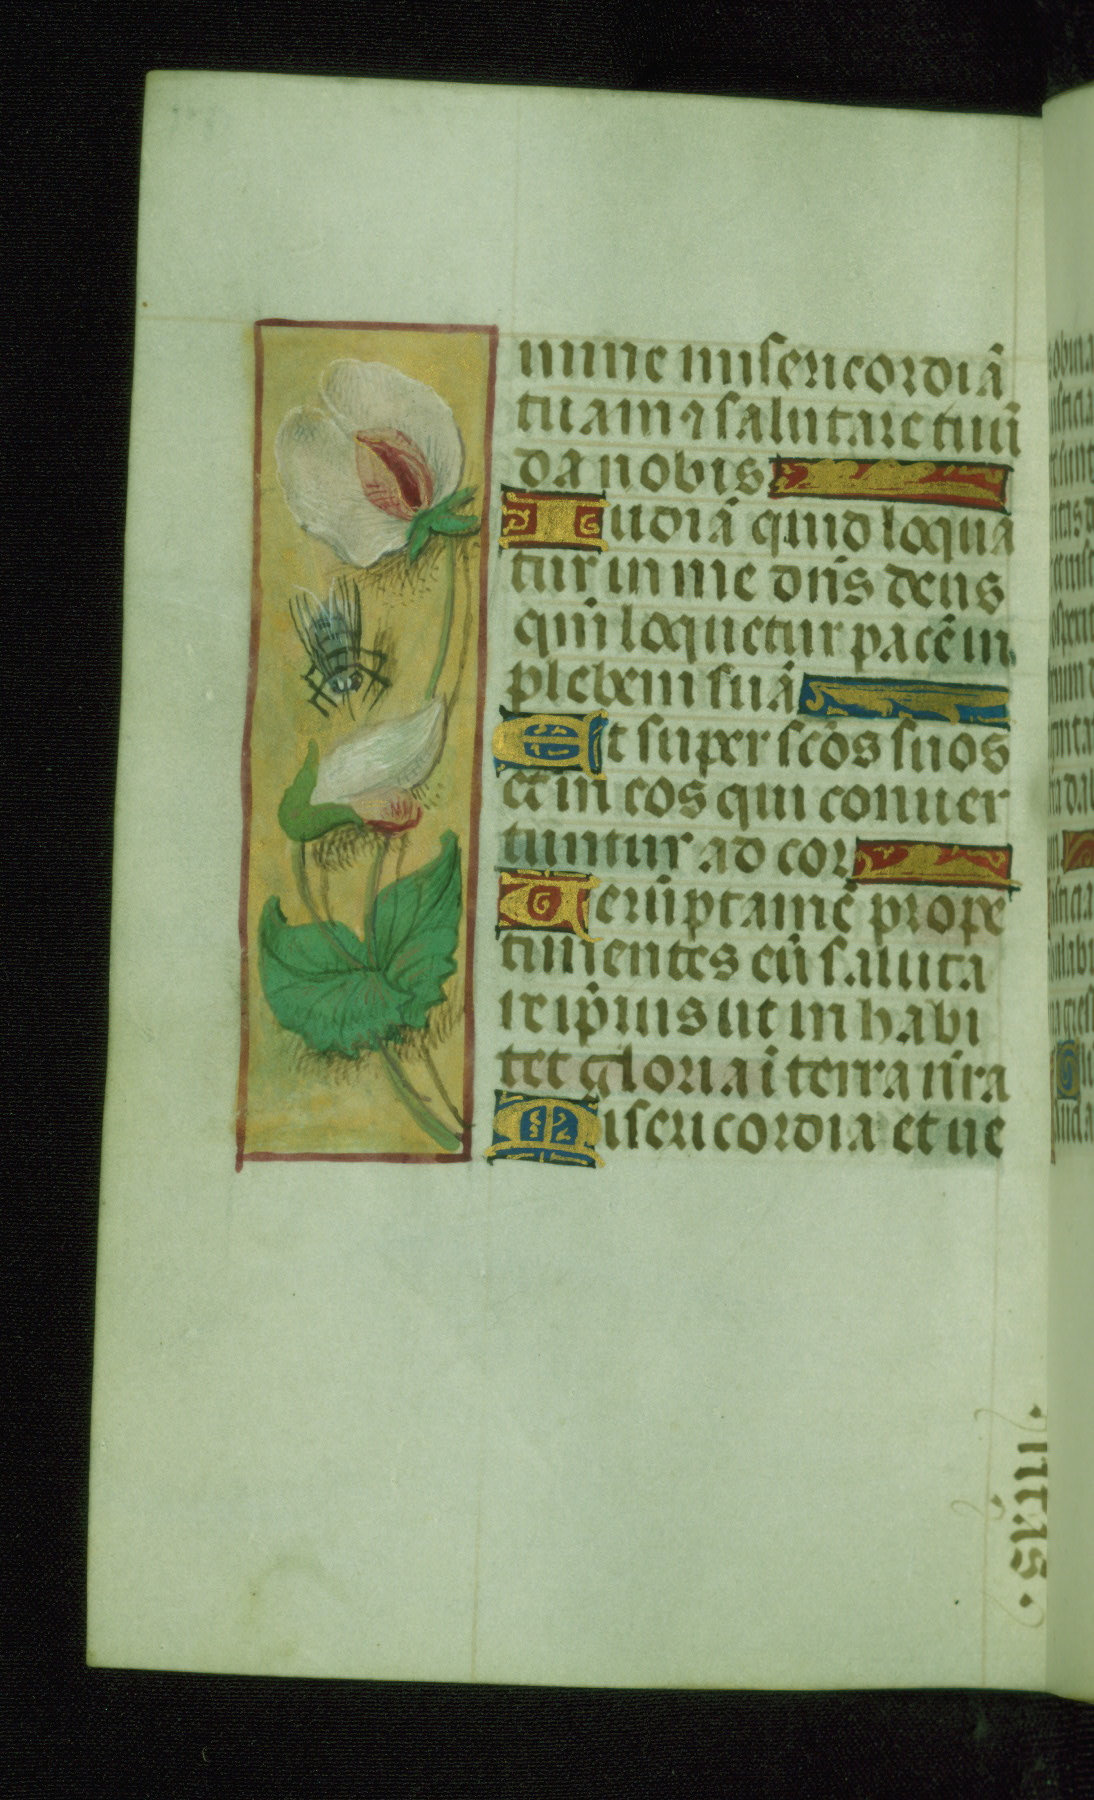 mine misericordiā
tuam ⁊ salutare tuū
da nobis
Audiā quid loqua
tur in me dn̄s deus
qui loquetur pacē in
plebem suā
Et super sc̄os suos
et in eos qui conuer
tuntur ad cor
Uerūptamē prope
timentes eū saluta
re ip̄ius ut in habi
tet gloria ī terra nr̄a
Misericordia et ue